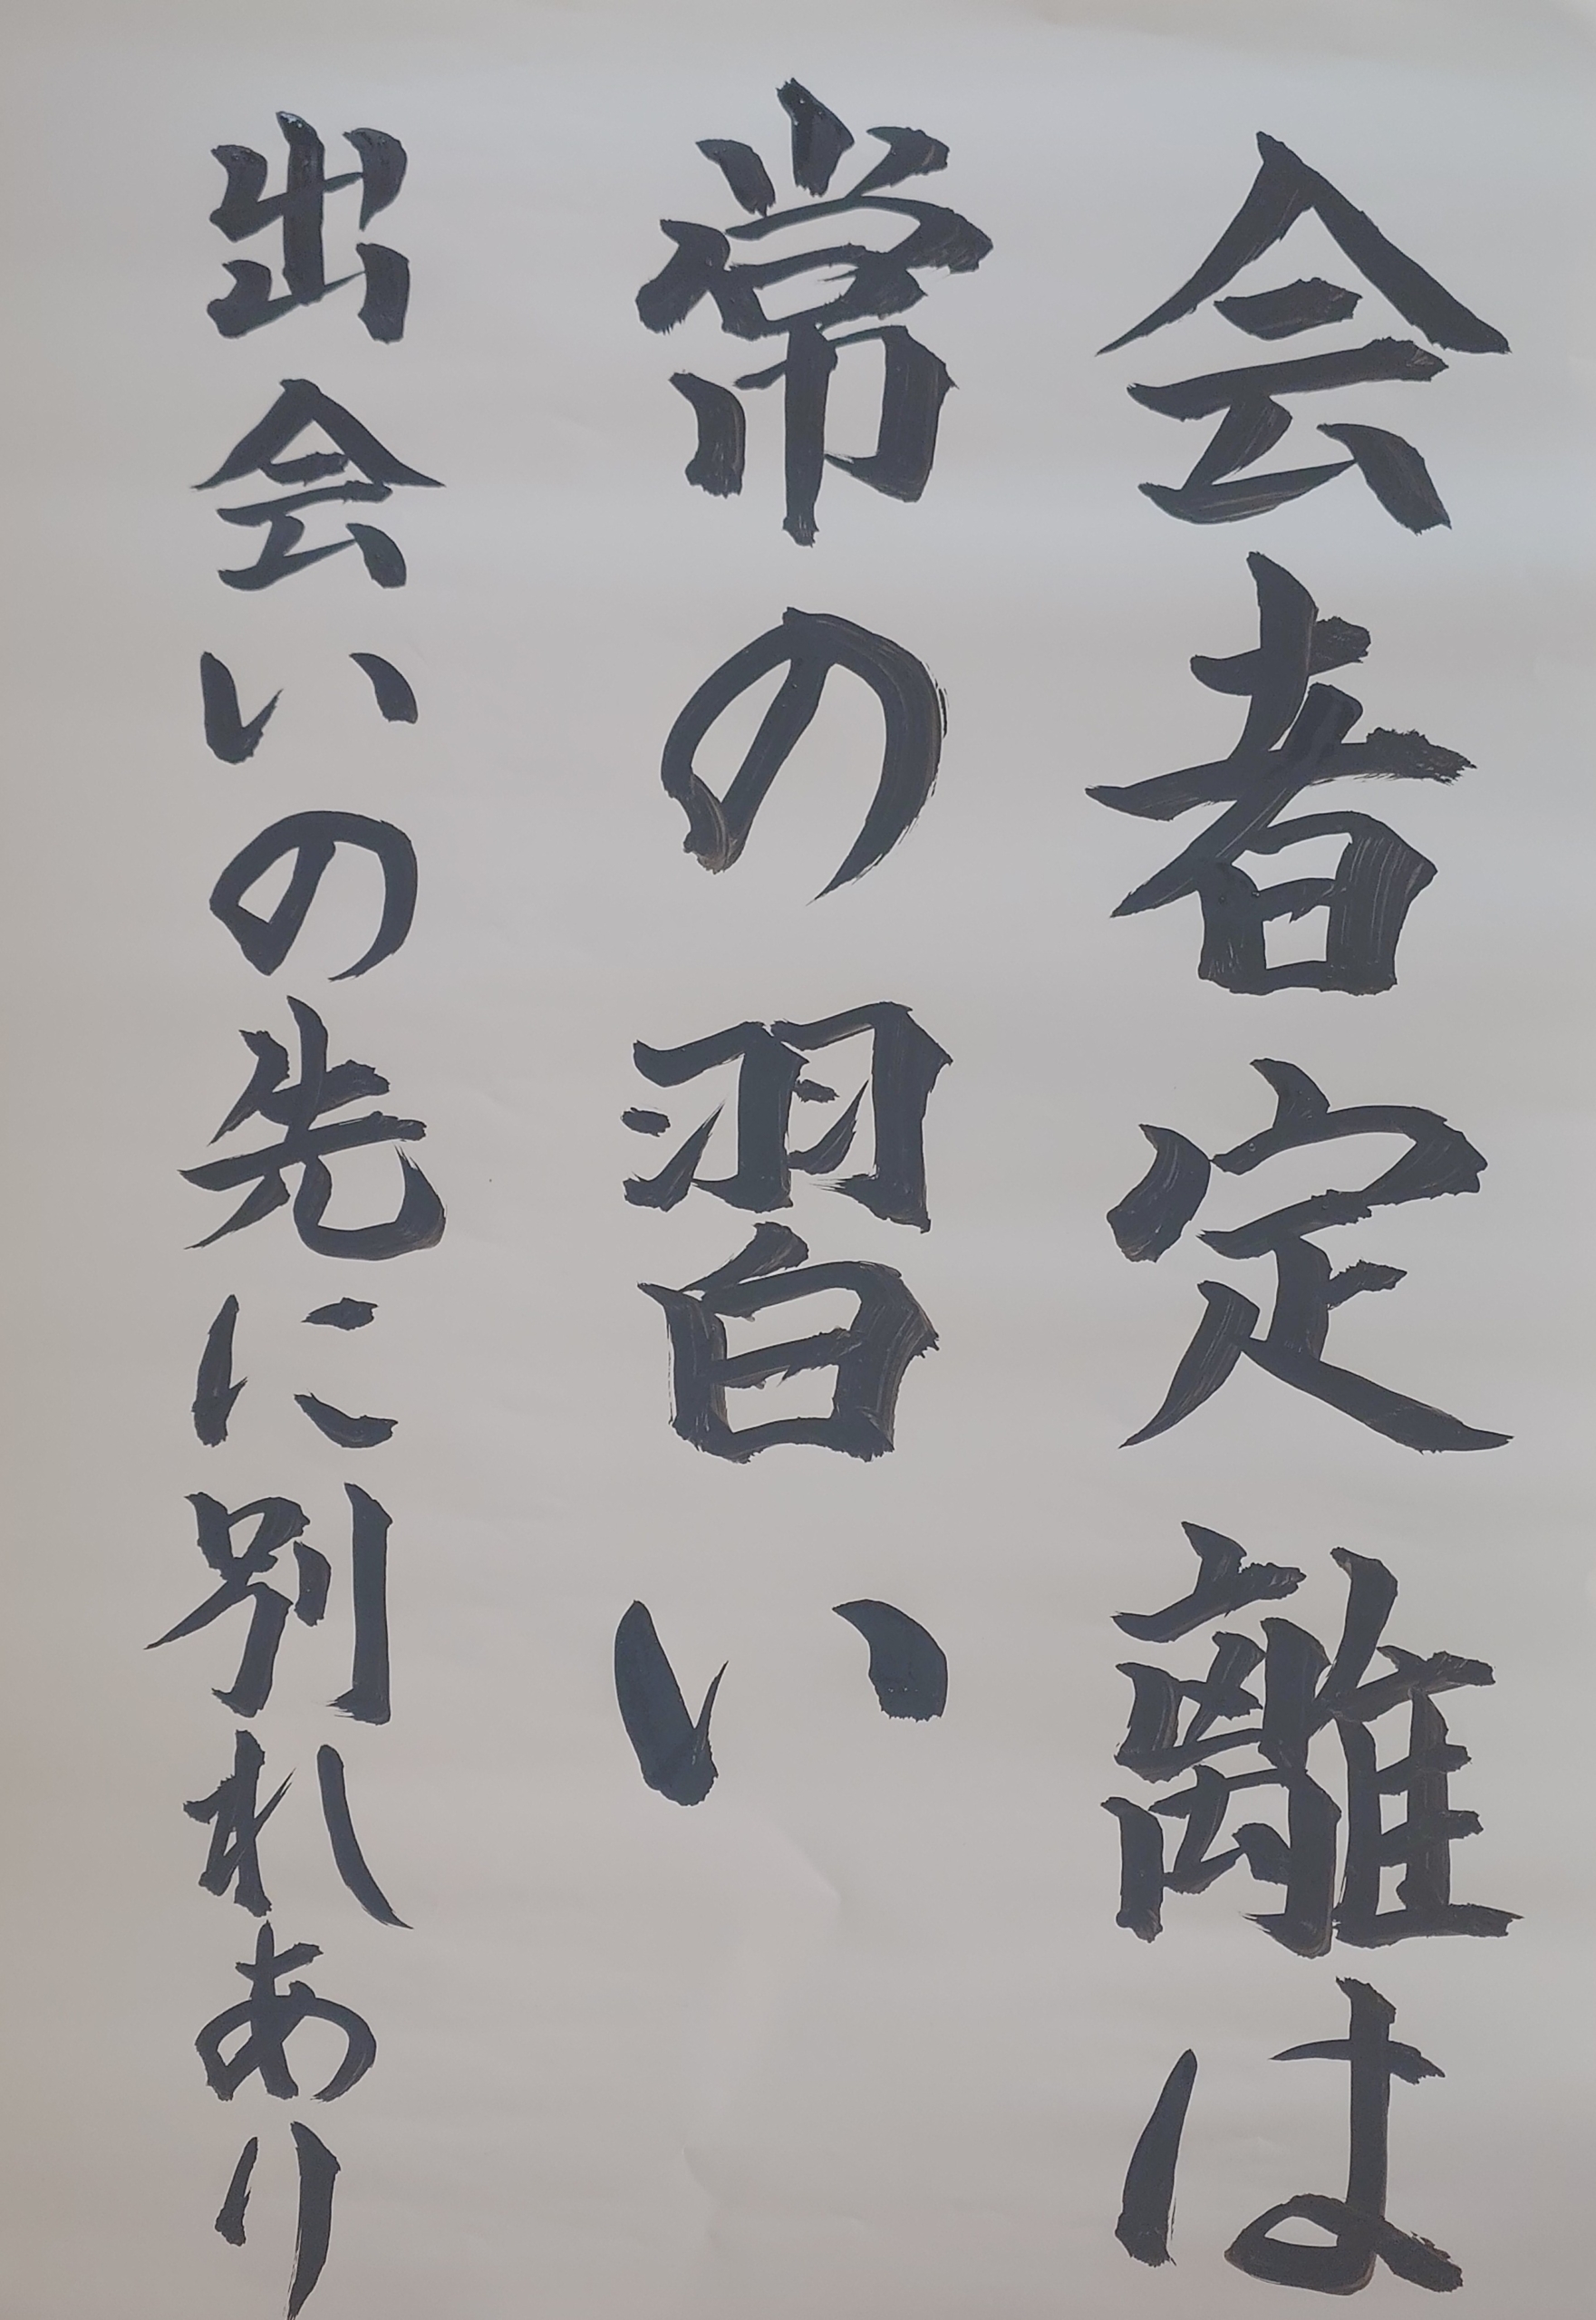 会者定離は
常の習い
出会いの先に別れあり